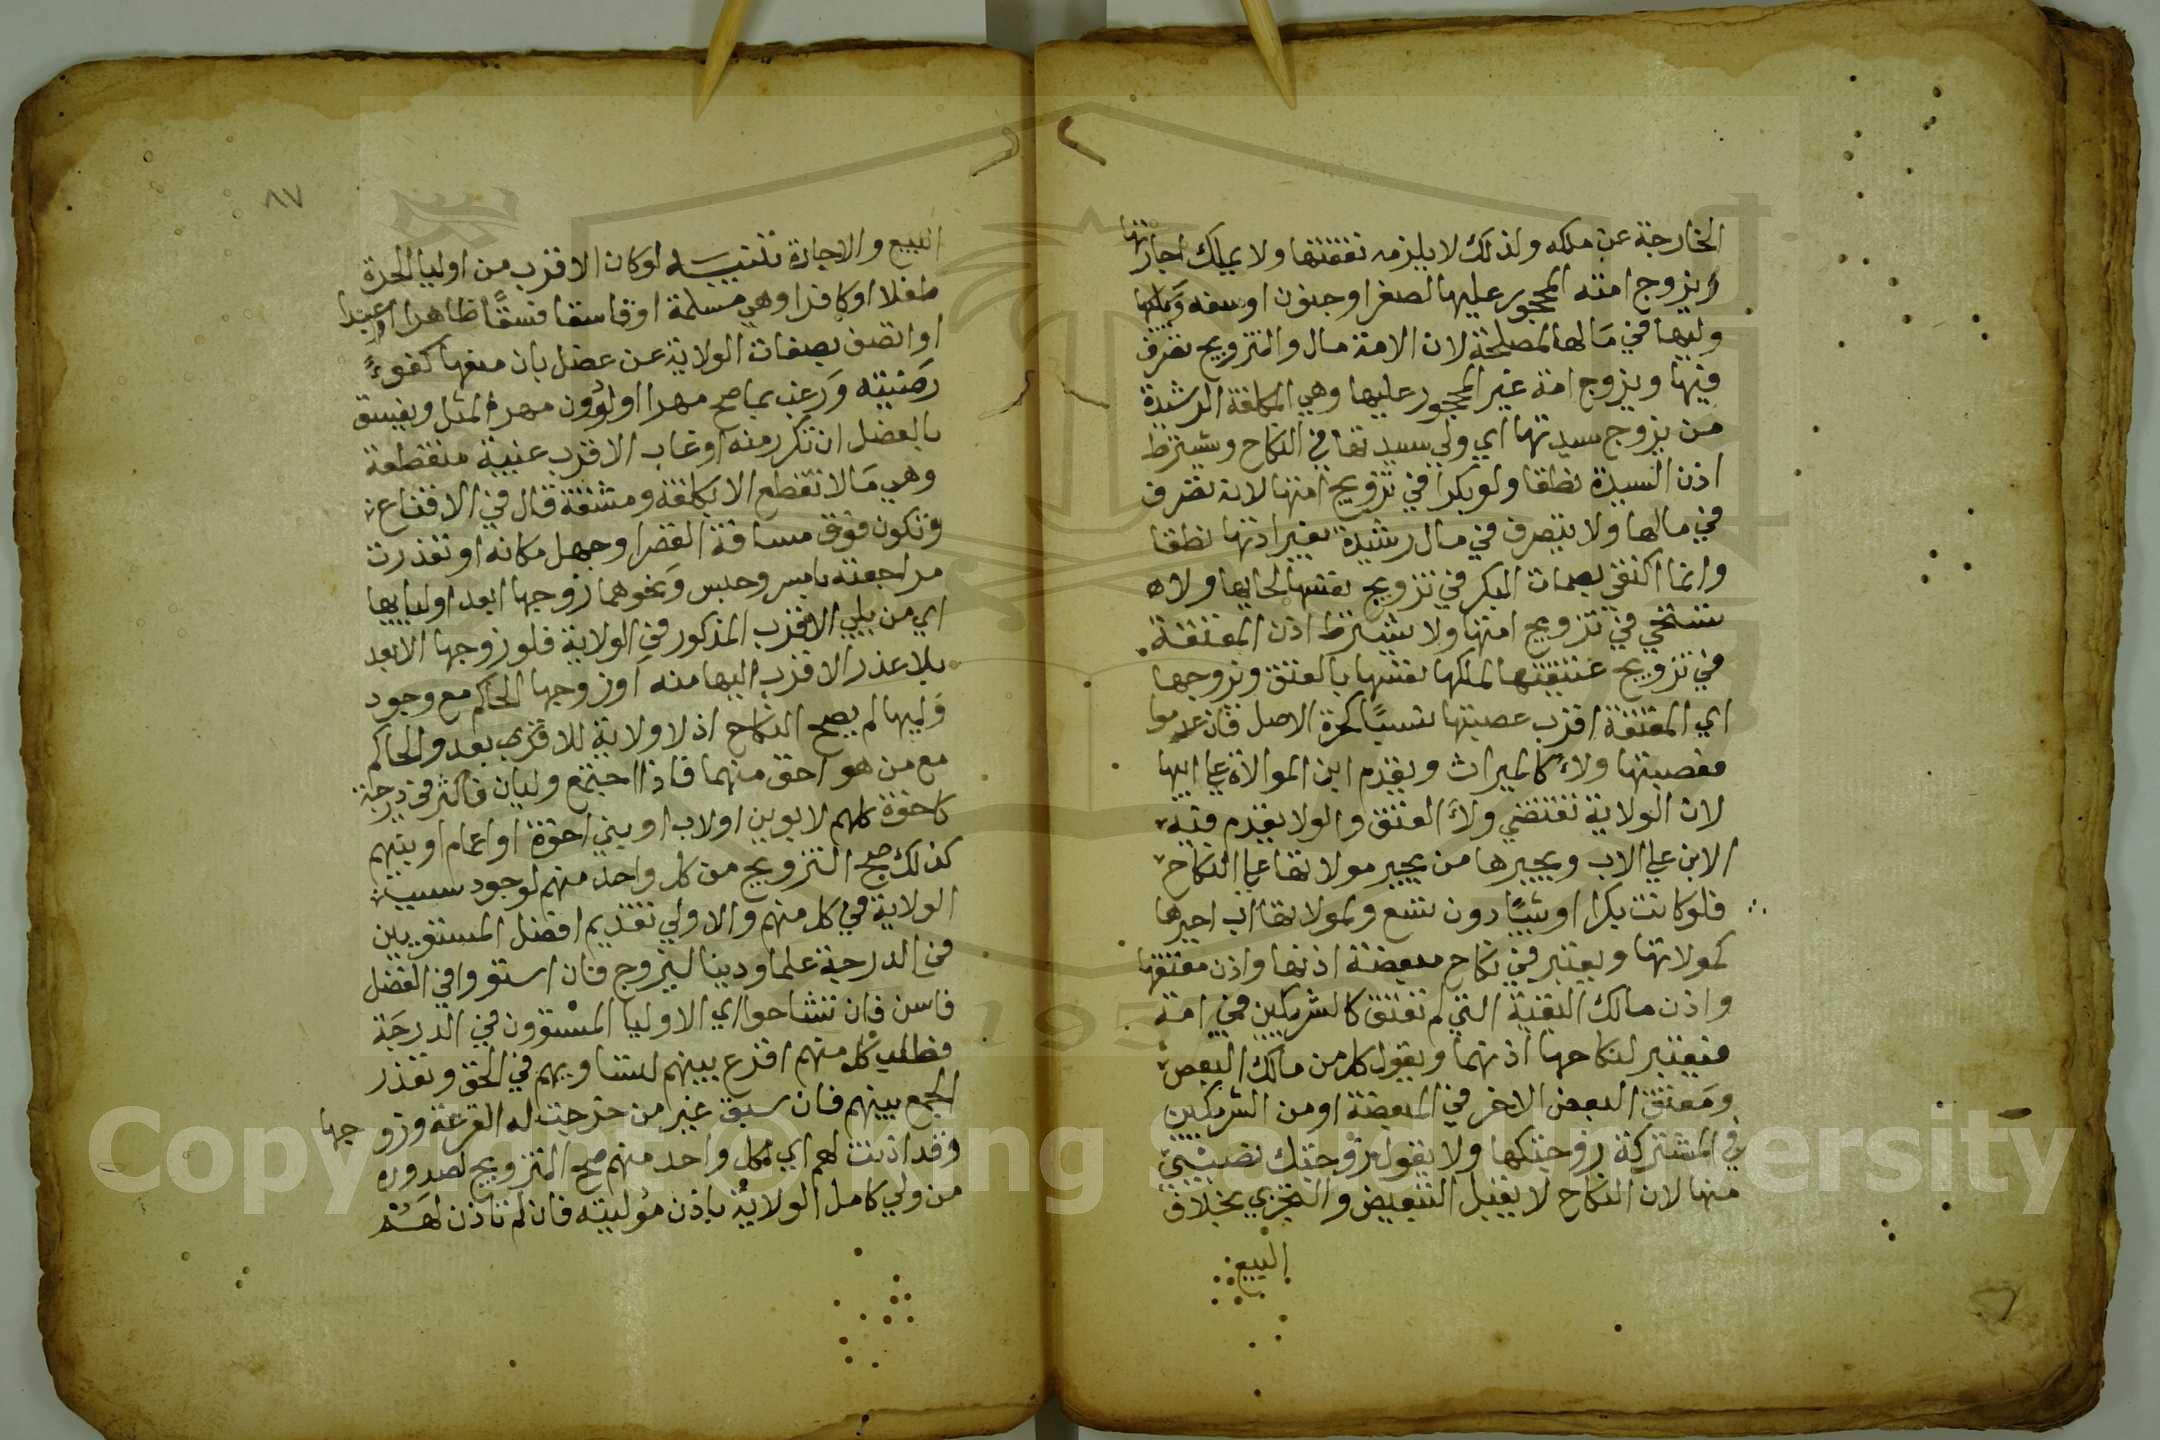 الخارجة عن ملكه ولذلك لا يلزمه نفقتها ولا يملك اجارتها
ويزوج امته المحجور عليها لصغر او جنون او سفه وليها
وليها في مالها لمصلحة لان الامة مال والتزويج تصرف
فيها ويزوج امة غير المحجور عليها وهي المكلفة الرشيدة
من يزوج سيدتها اي ولي سيدتها في النكاح ويشترط
اذن السيدة نطقا ولو بكرا في تزويج امتها لانه تصرف
في مالها ولا يتصرف في مال رشيدة بغير اذنها نطقا
وانما اكتفي بصمات البكر في تزويج نفسها لحيايها ولا
تستحي في تزويج امتها ولا يشترط اذن المعتقة
في تزويج عتيقتها لملكها نفسها بالعتق ويزوجها
اي المعتقة اقرب عصبتها نسبًا كحرة الاصل فان عدموا
فعصبتها ولاءً كالميراث ويقدم ابن الموالاة على ابيها
لان الولاية تقتضي ولاء العتق والولا يقدم فيه
الابن علي الاب ويجبرها من يجبر مولاتها علي النكاح
فلو كانت بكرا او ثيبًا دون تسع ولمولاتها اب اجبرها
كمولاتها ويعتبر في نكاح مبعضة اذنها واذن معتقها
واذن مالك البقية التي لم تعتق كالشريكين في امة
فيعتبر لنكاحها اذنهما ويقول كل من مالك البعض
ومعتق البعض الاخر في المبعضة او من الشريكين
في المشتركة زوجتكها ولا يقول زوجتك نصيبي
منها لان النكاح لا يقبل التبعيض والتجزي بخلاف
البيع
٨٧
البيع والاجارة تنبيه لو كان الاقرب من اوليا الحرة
طفلا او كافرا وهي مسلمة او فاسقا فسقًا ظاهرا او عبدا
او اتصف بصفات الولاية عن عضل بان منعها كفوءً
رضيته ورغب بما صح مهرا ولو دون مهر المثل ويفسق
بالعضل ان تكرر منه او غاب الاقرب غيبة منقطعة
وهي ما لا تقطع الا بكلفة ومشقة قال في الاقناع
وتكون فوق مسافة القصر او جهل مكانه او تعذرت
مراجعته باسر وحبس ونحوهما زوجها ابعد اوليايها
اي من يلي الاقرب المذكور في الولاية فلو زوجها الابعد
بلا عذر الاقرب اليها منه او زوجها الحاكم مع وجود
وليها لم يصح النكاح اذ لا ولاية للاقرب بعد والحاكم
مع من هو احق منهما فاذا اجتمع وليان فاكثر في درجة
كاخوة كلهم لابوين او لاب او بني اخوة او اعمام او بنيهم
كذلك صح التزويج من كل واحد منهم لوجود سبب
الولاية في كل منهم والاولي تقديم افضل المستويين
في الدرجة علما ودينا ليزوج فان استووا في الفضل
فاسن فان تشاحوا اي الاوليا المستوون في الدرجة
فطلب كل منهم اقرع بينهم لتساويهم في الحق وتعذر
الجمع بينهم فان سبق غير من خرجت له القرعة وزوجها
وقد اذنت لهم اي لكل واحد منهم صح التزويج لصدوره
من ولي كامل الولاية باذن موليته فان لم تاذن لهم
Copyright © King Saud University
195